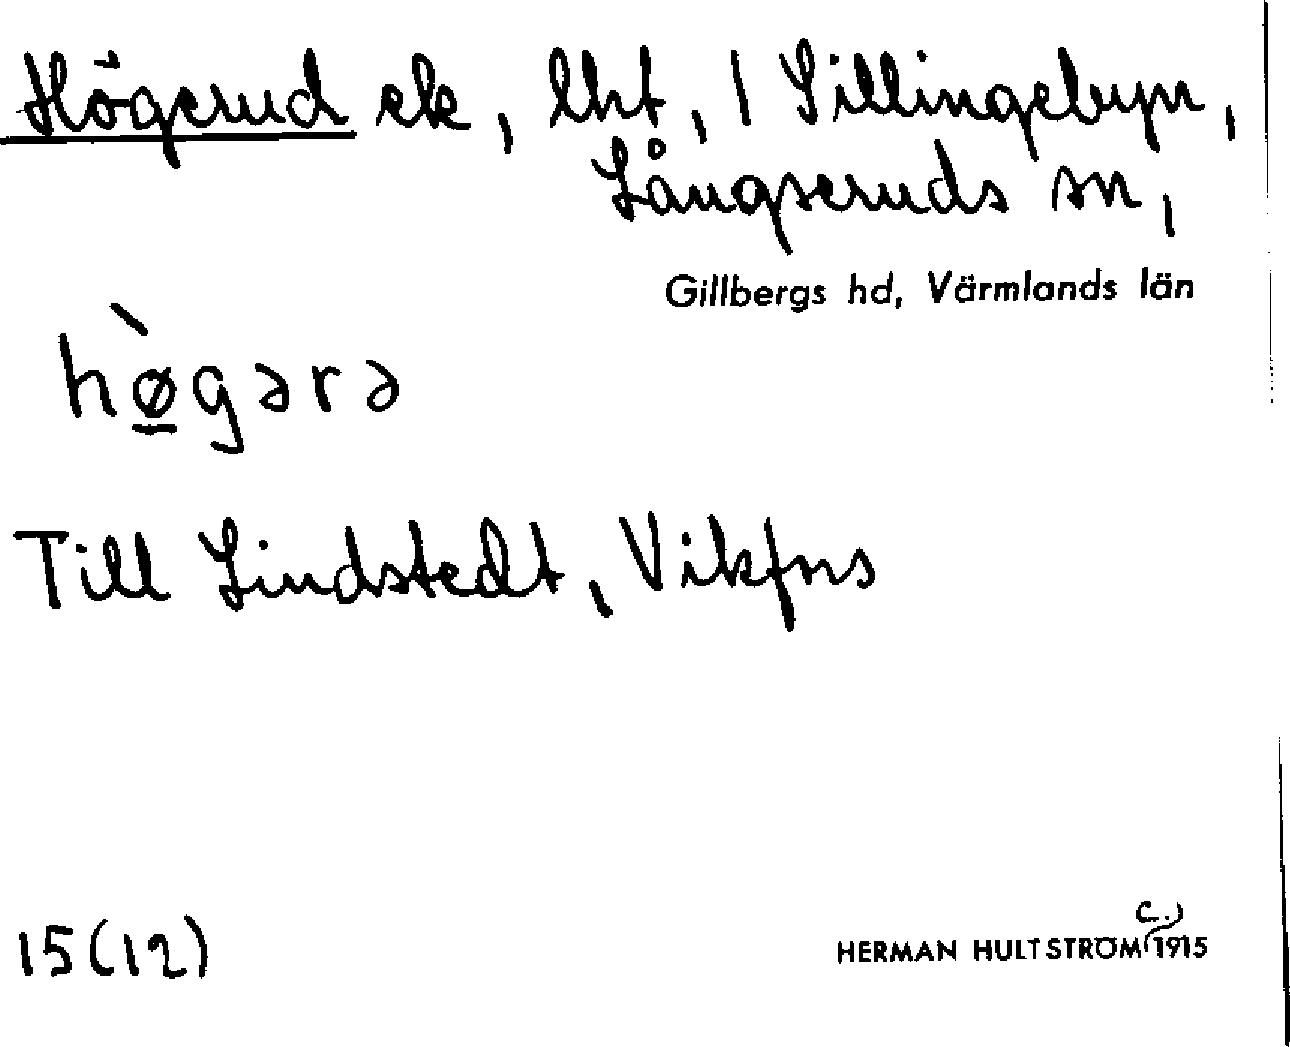 Högerud ek, lht, 1 Sillingebyn,
Långseruds sn,
Gillbergs hd, Värmlands län
hø̲̀gərə
Till Lindstedt, Vikfors
15(12)
c.)
HERMAN HULTSTRÖM 1915